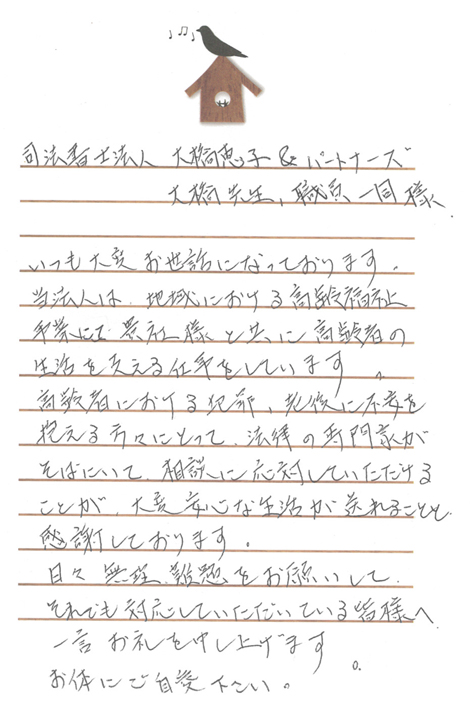 司法書士法人 大橋恵子&パートナーズ
大橋先生、職員一同様
いつも大変お世話になっております。
当法人は、地域における高齢福祉
事業にて貴社様と共に高齢者の
生活を支える仕事をしています。
高齢者における犯罪、老後に不安を
抱える方々にとって、法律の専門家が
そばにいて、相談に応対していただける
ことが、大変安心な生活が送れることと
感謝しております。
日々無理難題をお願いして、
それでも対応していただいている皆様へ
一言お礼を申し上げます。
お体にご自愛下さい。